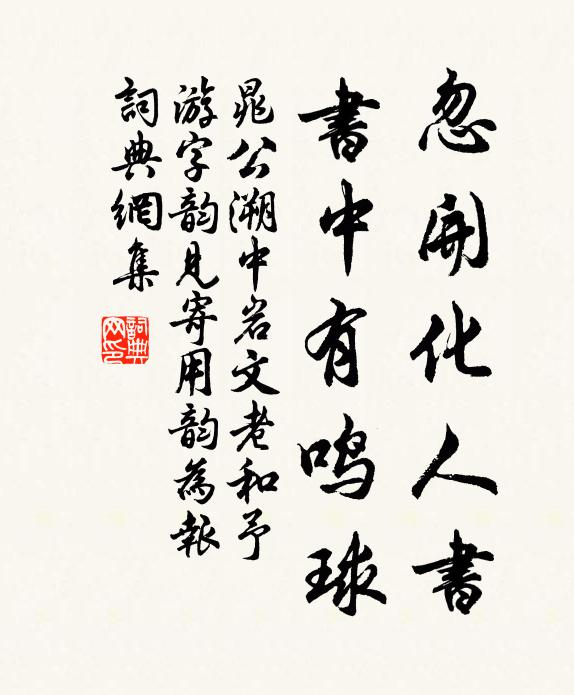 忽開化人書
書中有鸣球
晁公溯中岩文老和予
游字韵見寄用韵為報
詞典網集
詞典
网印